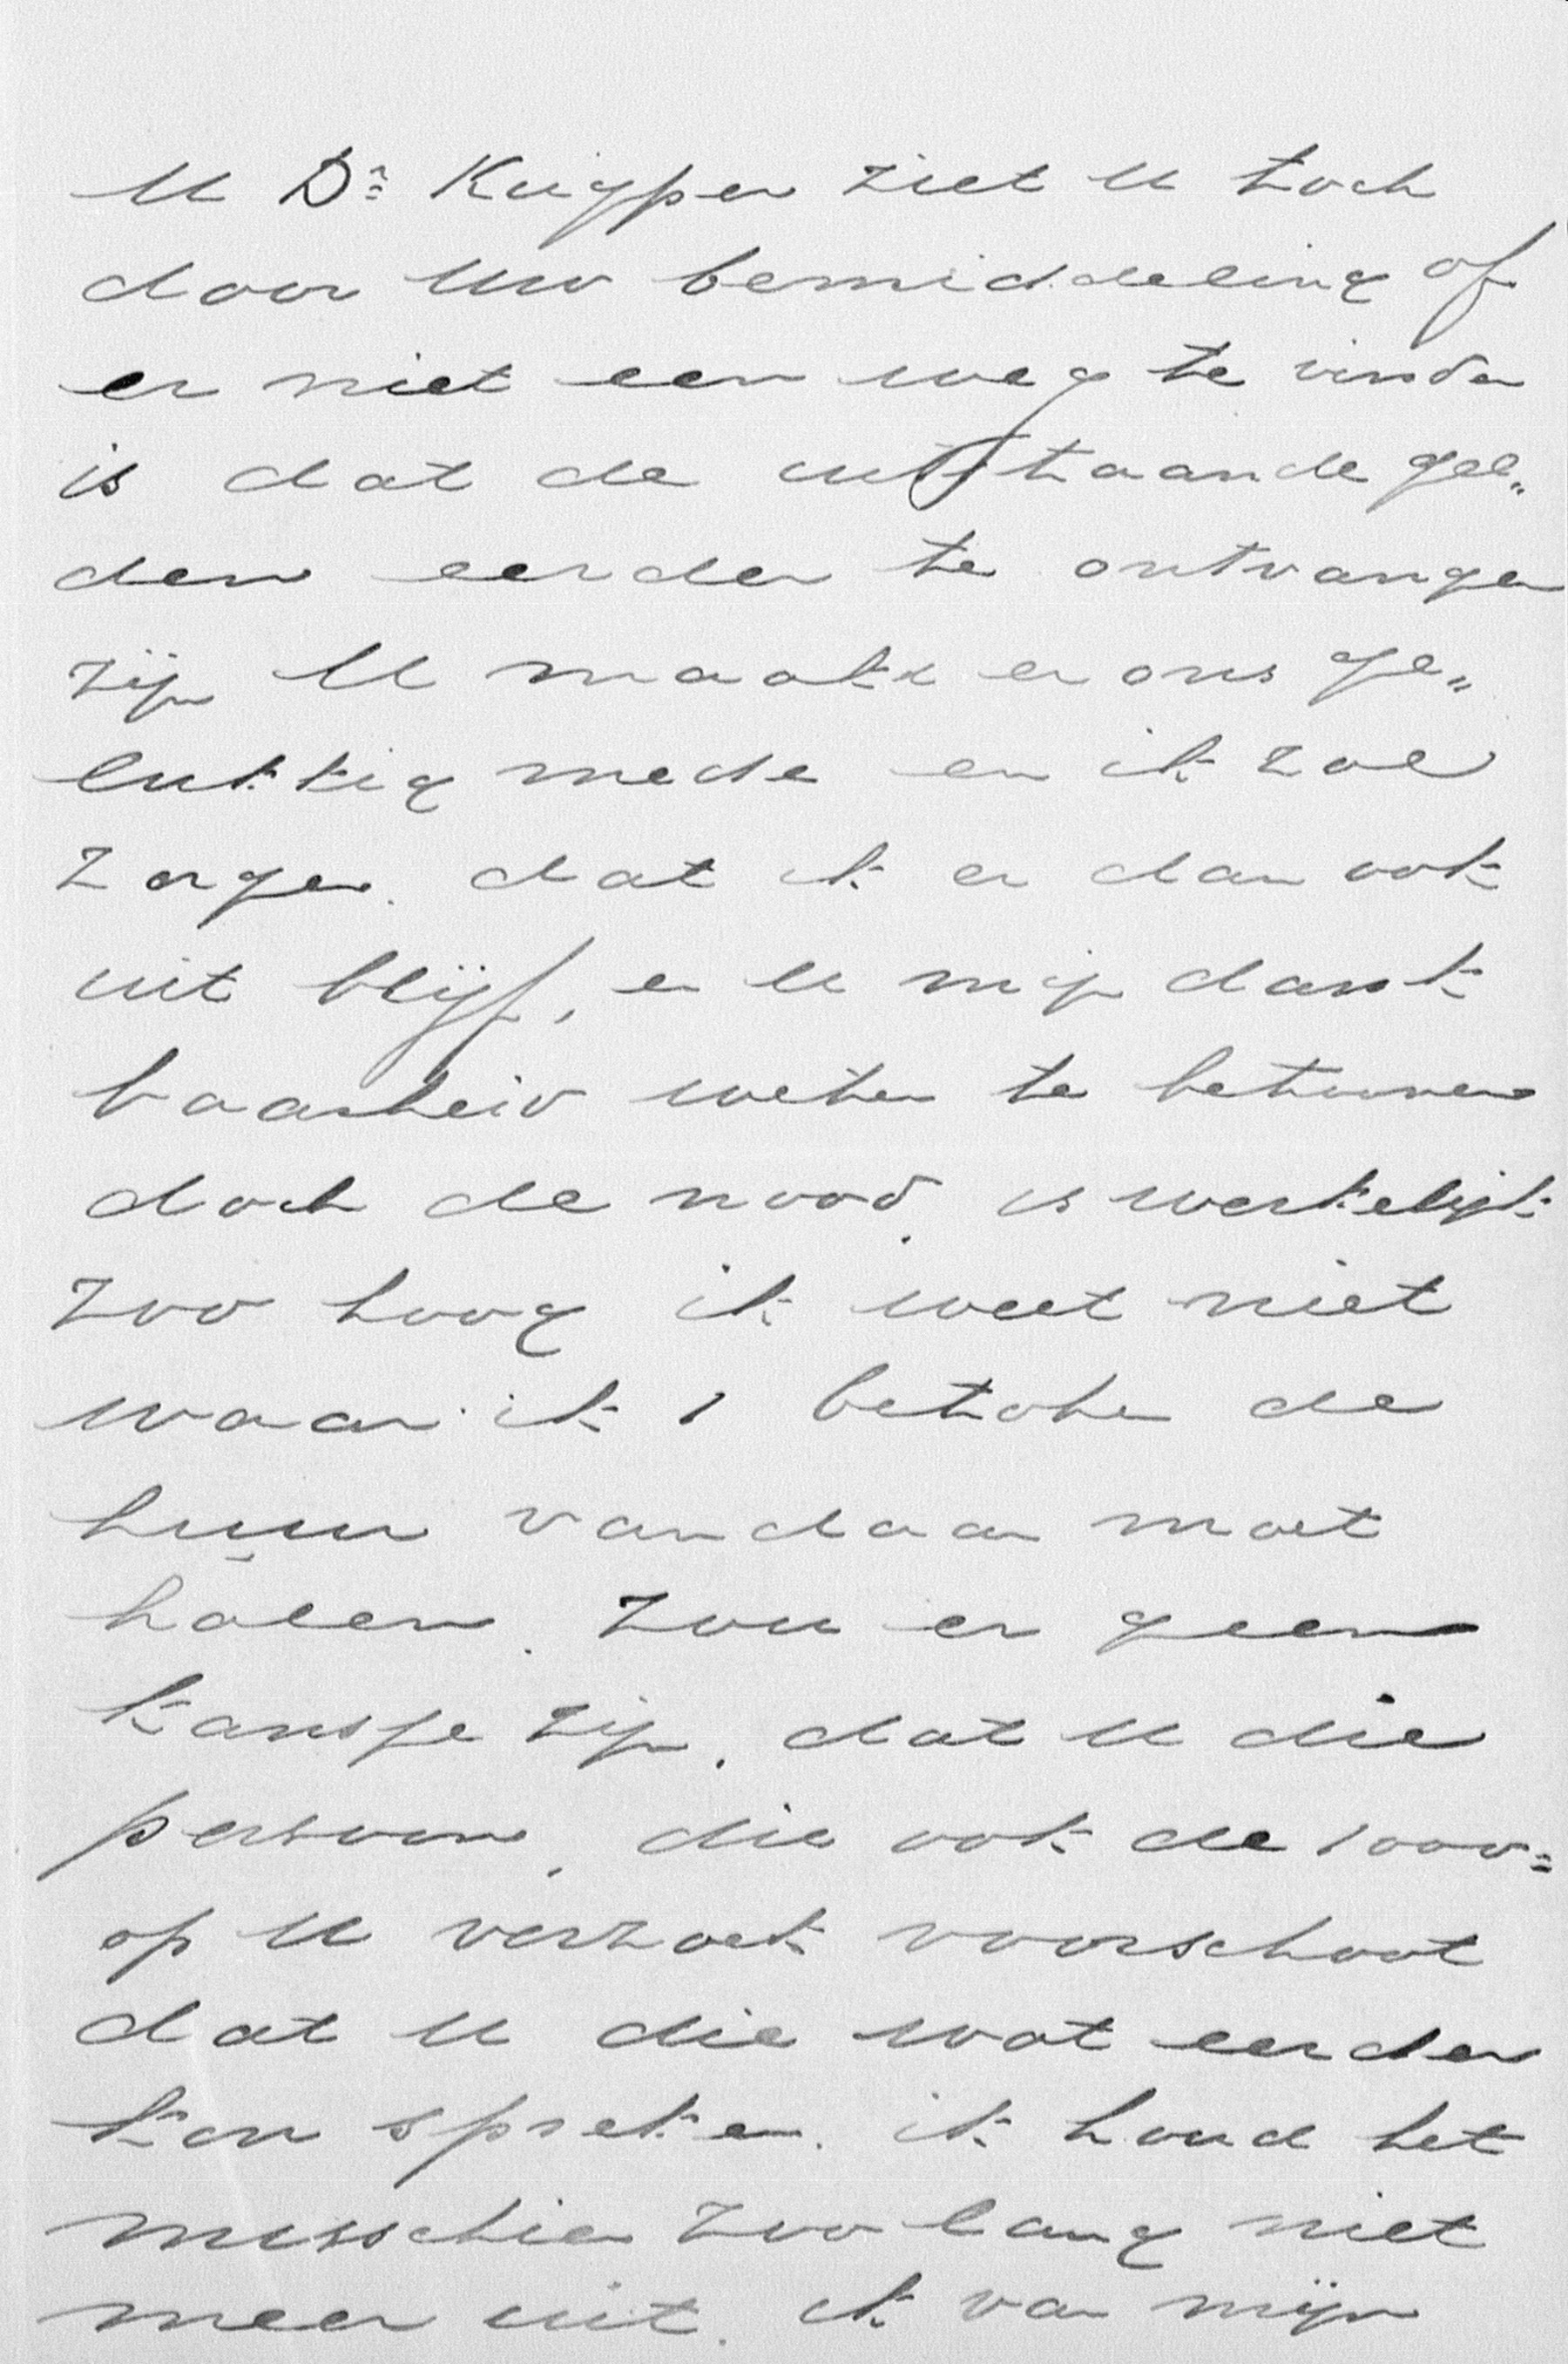 U Dr Kuijper ziet U toch
door Uw bemiddeling of
er niet een weg te vinden
is dat de uitstaande gel„
den eerder te ontvangen
zijn U maakt er ons ge„
lukkig mede en ik zal
zorgen. dat ik er dan ook
uit blijf, en U mijn dank
baarheid weten te betoonen
doch de nood is werkelijk
zoo hoog ik weet niet
waar ik 1 October de
huur vandaan moet
halen. Zou er geen
kansje zijn. dat U die
persoon, die ook de 1000=
op U verzoek voorschoot
dat U die wat eerder
kon spreken. ik houd het
misschien zoo lang niet
meer uit. ik van mijn